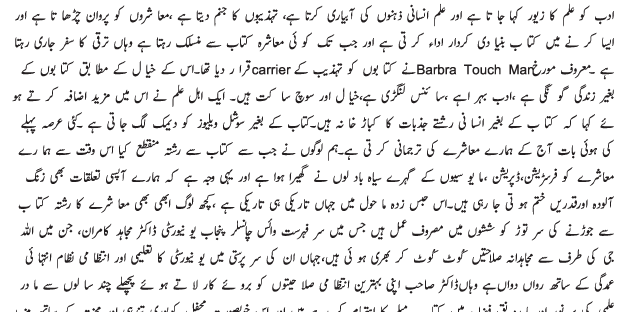 ادب کو علم کا زیور کہا جا تا ہے اور علم انسانی ذہنوں کی آبیاری کرتا ہے، تہذیبوں کا جنم دیتا ہے ،معا شروں کو پروان چڑھا تا ہے اور
ایسا کر نے میں کتا ب بنیا دی کردار اداء کر تی ہے اور جب تک کو ئی معاشرہ کتاب سے منسلک رہتا ہے وہاں ترقی کا سفر جاری رہتا
ہے ۔معروف مورخBarbra Touch Marنے کتا بوں کو تہذیب کےcarrier قرا ر دیا تھا۔اس کے خیا ل کے مطا بق کتا بوں کے
بغیر زندگی گو نگی ہے ،ادب بہر ا ہے ،سا ئنس لنگڑی ہے،خیا ل اور سوچ سا کت ہیں۔ ایک اہل علم نے اس میں مزید اضافہ کر تے ہو
ئے کہا کہ کتا ب کے بغیر انسا نی رشتے جذبات کا کباڑ خا نہ ہیں۔کتاب کے بغیر سوشل ویلیوز کو دیمک لگ جا تی ہے ۔کئی عرصہ پہلے
کی ہوئی بات آج کے ہمارے معاشرے کی ترجمانی کر تی ہے۔ہم لوگوں نے جب سے کتاب سے رشتہ منقطع کیا اس وقت سے ہما رے
معاشرے کو فرسٹریشن،ڈپریشن ،ما یو سیوں کے گہرے سیاہ باد لوں نے گھیرا ہوا ہے اور یہی وجہ ہے کہ ہمارے آپسی تعلقات بھی زنگ
آلودہ اورقدریں ختم ہو تی جا رہی ہیں۔اس حبس زدہ ما حول میں جہاں تاریکی ہی تاریکی ہے ،کچھ لوگ ابھی بھی معا شرے کا رشتہ کتا ب
سے جوڑنے کی سر توڑ کو ششوں میں مصروف عمل ہیں جس میں سر فہرست وائس چانسلر پنجاب یو نیورسٹی ڈاکٹر مجاہد کامران، جن میں اللہ
جی کی طرف سے مجاہدانہ صلاحتیں کوٹ کوٹ کر بھری ہو ئی ہیں،جہاں ان کی سر پرستی میں یو نیورسٹی کا تعلیمی اور انتظا می نظام انتہا ئی
عمدگی کے ساتھ رواں دواں ہے وہاں ڈاکٹر صاحب اپنی بہترین انتظا می صلا حیتوں کو برو ئے کار لا تے ہو ئے پچھلے چند سا لوں سے ما در